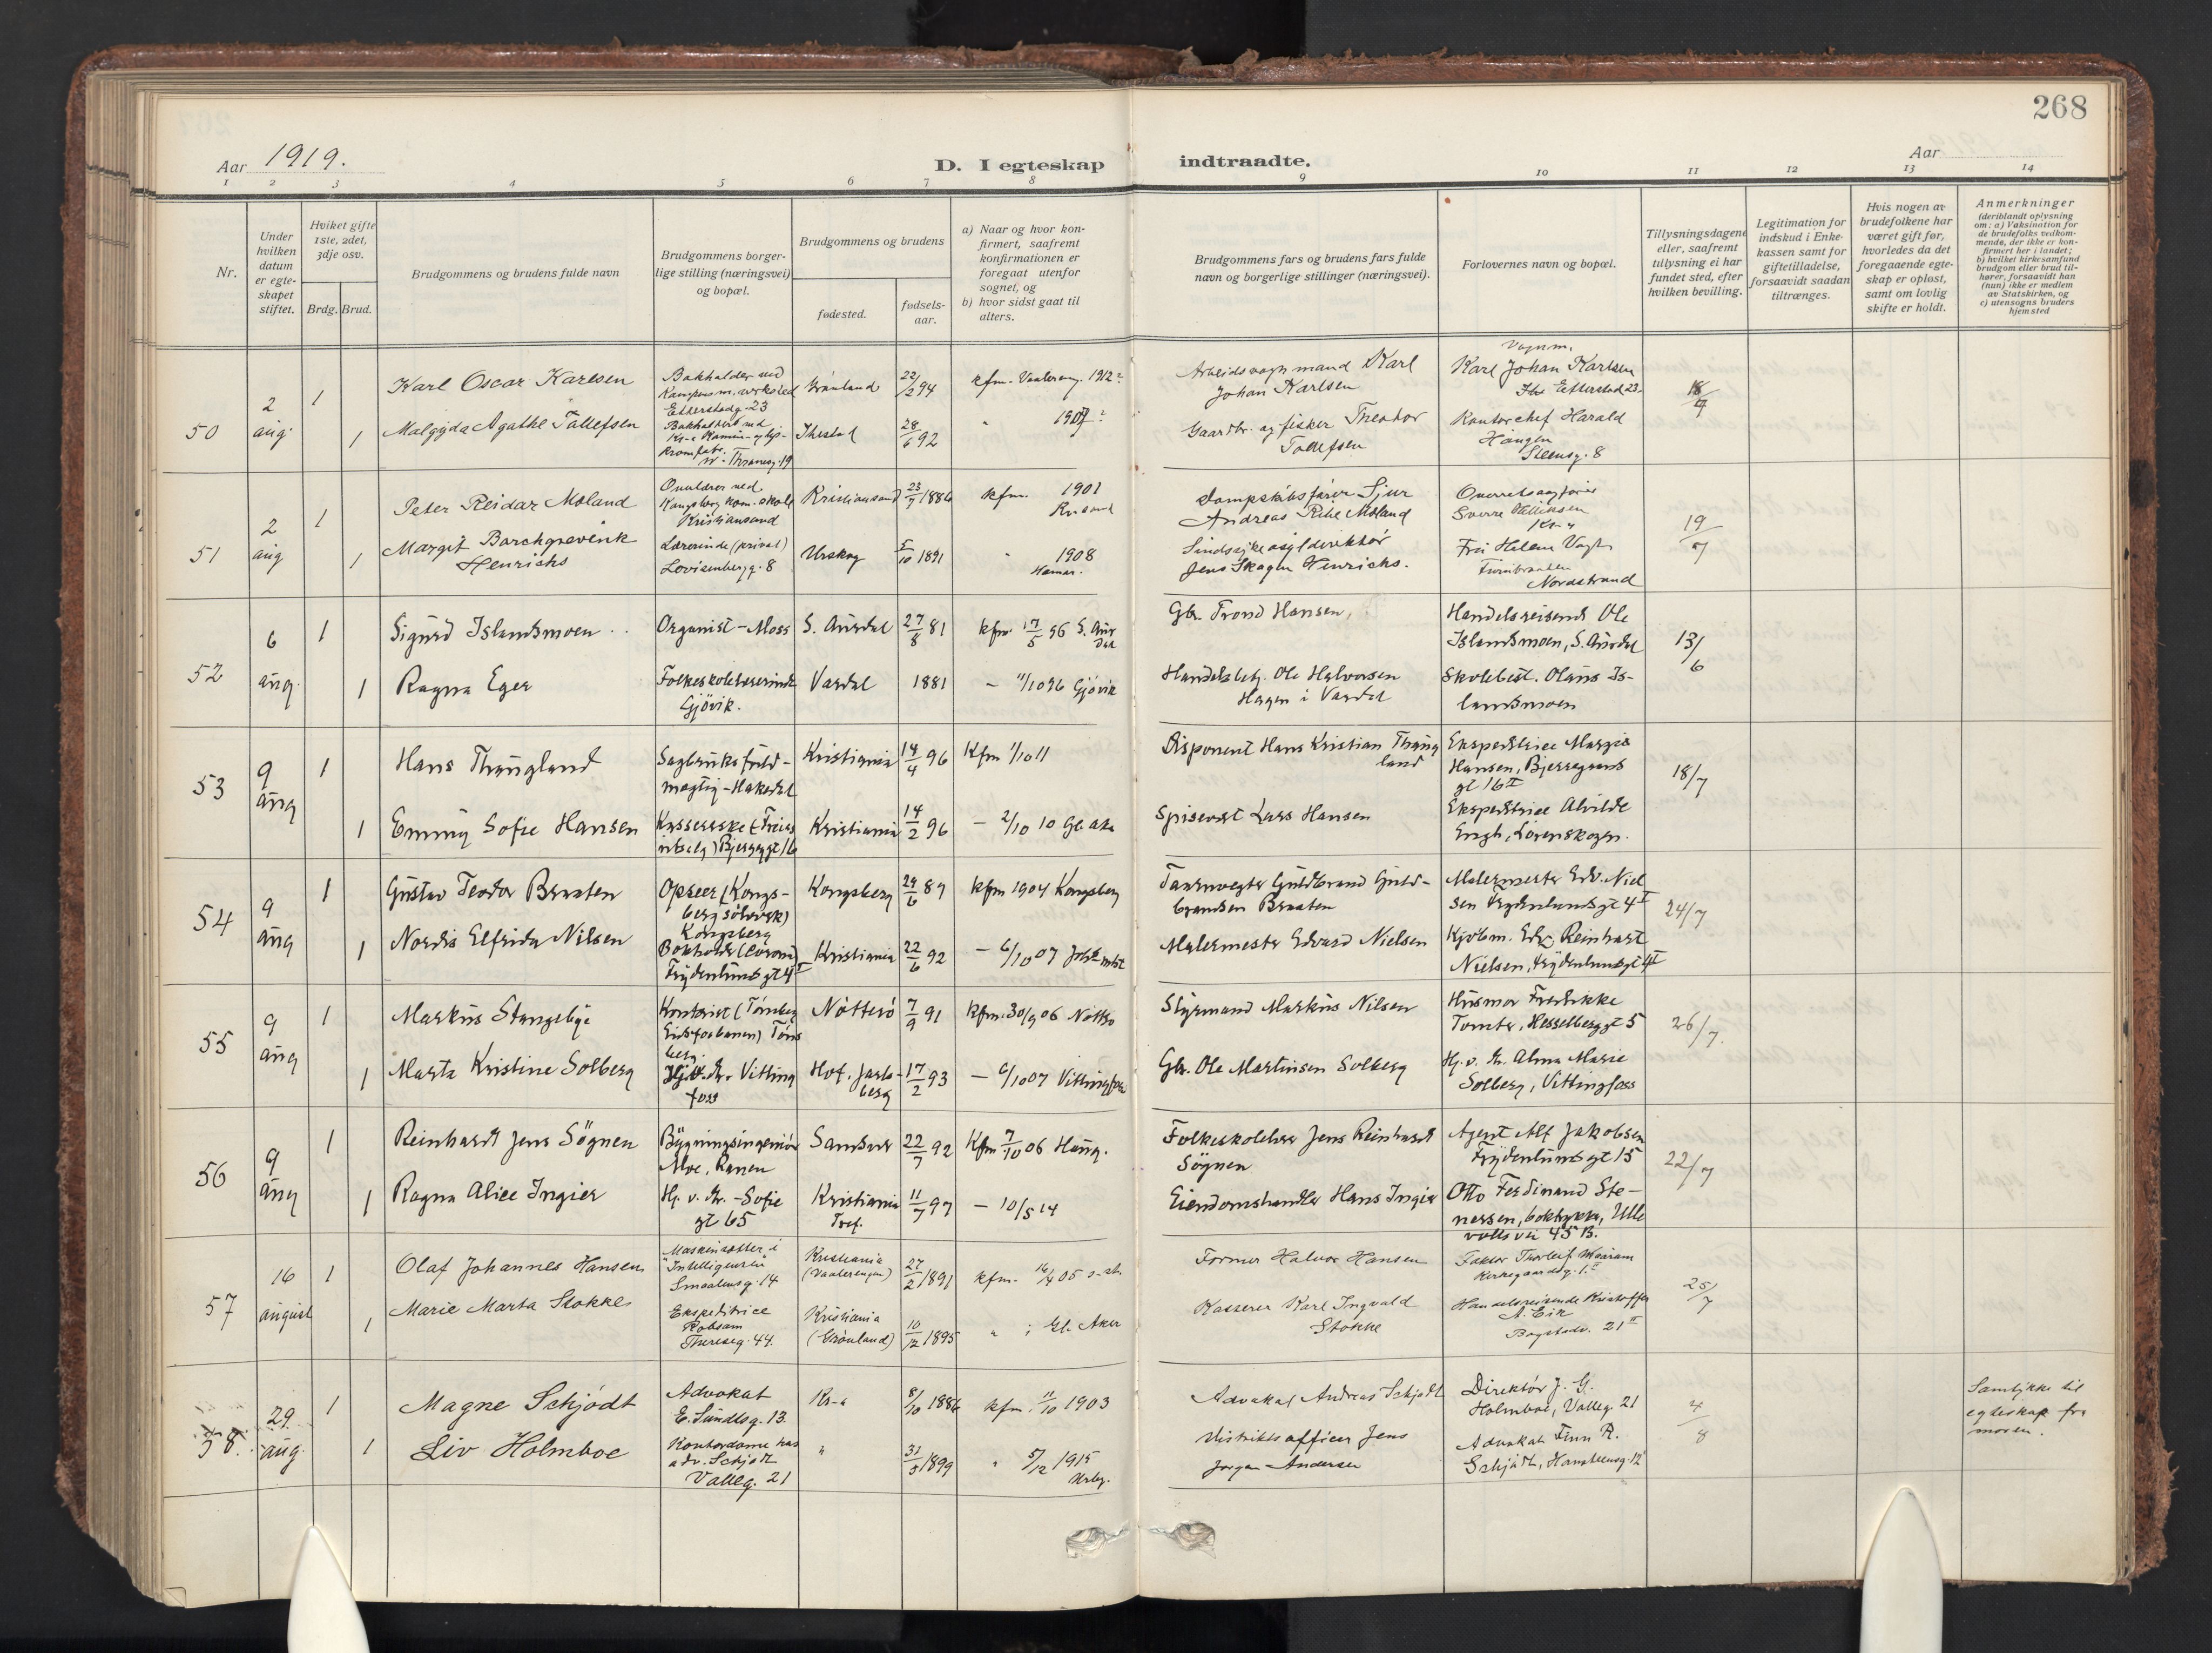 268
Aar 1919.
D. I egteskap indtraadte.
Aar
1 2 3 4 5 6 7 8 9 10 11 12 13 14
Nr.
Under hvilken datum er egteskapet stiftet.
Hvilket gifte 1ste, 2det, 3dje osv.
Brdg. Brud.
Brudgommens og brudens fulde navn
Brudgommens borgerlige stilling (næringsvei) og bopæl.
Brudgommens og brudens
fødested.
fødselsaar.
a) Naar og hvor konfirmert, saafremt konfirmationen er foregaat utenfor sognet, og
b) hvor sidst gaat til alters.
Brudgommens fars og brudens fars fulde navn og borgerlige stillinger (næringsvei).
Forlovernes navn og bopæl.
Tillysningsdagene eller, saafremt tillysning ei har fundet sted, efter hvilken bevilling.
Legitimation for indskud i Enkekassen samt for giftetilladelse, forsaavidt saadan tiltrænges.
Hvis nogen av brudefolkene har været gift før, hvorledes da det foregaaende egteskap er opløst, samt om lovlig skifte er holdt.
Anmerkninger
(deriblandt oplysning om: a) Vaksination for de brudefolks vedkommende, der ikke er konfirmert her i landet; b) hvilket kirkesamfund brudgom eller brud tilhører, forsaavidt han (hun) ikke er medlem av Statskirken, og c) utensogns bruders hjemsted
50
2 aug.
1
Karl Oscar Karlsen
Etterstadg. 23
Grønland
22/2 94
kfm. Vaalereng. 1912?
Arbeidsvogn mand Karl
Johan Karlsen
Vognm.
Karl Johan Karlsen
Etterstad 23.
18/7
1
Agathe Tallefsen
Thranesg. 19
28/6 92
Gaardbr. og fisker Theodor
Tollefsen
Kontorchef Harald
Haugen
Steensg. 8
51
2 aug
1
Peter Reidar Moland
Kongsberg kom. skole
Kristiansand
Kristiansand
23/7 1886
kfm. 1901
Dampskibsfører Sjur
Andreas Moland
Overretssagfører
Sverre
Kr.a
19/7
1
Margit Borchgrevink
Henrichs
Lærerinde (privat)
Lovisenbergg. 8
Urskog
5/10 1891
" 1908
Hamar.
Sindssykeasyldirektør
Jens Skogen Henrichs.
Frk Helene Vogt
Nordstrand
52
6 aug.
1
Sigurd Islandsmoen
Organist – Moss
S. Aurdal
27/8 81
kfm. 17/5 96 S. Aurdal
Gbr. Trond Hansen,
Handelsreisende Ole
Islandsmoen, S. Aurdal
13/6
1
Ragna Eger
Folkeskolelærerinde
Gjøvik.
Vardal
1881
– 11/10 96 Gjøvik
Handelsbetj. Ole Halvorsen
Hagen i Vardal
Skolebest. Olaus Is-
landsmoen
53
9 aug
1
Hans Thaugland
Sagbruksfuld-
mægtig – Hakedal
Kristiania
14/4 96
Kfm 1/10 11
Disponent Hans Kristian Thaug
land
Ekspeditrice Margit
Hansen, Bjerregaards
gt 16 I
18/7
1
Emmy Sofie Hansen
Kasserske (Freias
utsalg) Bjerreggt 16
Kristiania
14/2 96
– 2/10 10 Gl. Aker
Spisevert Lars Hansen
Ekspeditrice Alvilde
Engh, Lørenskogen.
54
9 aug
1
Gustav Teodor Braaten
Opseer (Kongs-
berg sølvverk)
Kongsberg
Kongsberg
29/6 89
kfm 1904 Kongsberg
Taarnvegter Guldbrand Guld-
brandsen Braaten
Malermester Edv. Niel
sen Frydenlundsgt 4 I
24/7
1
Nordis Elfrida Nilsen
Frydenlundsgt 4 I
Kristiania
22/6 92
– 6/10 07
Malermester Edvard Nielsen
Kjøbm. Edv. Reinhart
Nielsen, Frydenlundsgt 4 I
55
9 aug
1
Markus Stangebye
Kontorist (Tønsberg
Eidsfosbanen) Tøns
berg.
Nøtterø
7/9 91
kfm. 30/9 06 Nøtterø
Styrmand Markus Nilsen
Husmor Fredrikke
Tomter, Hesselberggt 5
26/7.
1
Marta Kristine Solberg
Hj. v. m. Vitting
foss
Hof. Jarls-
berg
17/2 93
– 6/10 07 Vittingfoss
Gbr. Ole Martinsen Solberg
Hj. v. m. Alma Marie
Solberg, Vittingfoss
56
9 aug
1
Reinhardt Jens Søgnen
Bygningsingeniør
Moe, Ranen
Sandsvær
22/7 92
Kfm 7/10 06 Haug.
Folkeskolelærer Jens Reinhardt
Søgnen
Agent Alf Jakobsen
Frydenlundsgt 15
22/7
1
Ragna Alice Ingier
Hj. v. m. – Sofie
gt 65
Kristiania
Tref.
11/7 97
– 10/5 14
Eiendomshandler Hans Ingier
Otto Ferdinand Ste-
nersen, boktrykker, Ulle
volls vei 45 B.
57
16 august
1
Olaf Johannes Hansen
Maskinsætter i
"Intelligensen"
Smaalensg. 14
Kristiania
(Vaalerengen)
27/2 1891
kfm. 16/4 05
Former Halvor Hansen
Faktor Thorleif
Kirkegaardsg. 1 II
25/7
1
Marie Marta Stokke
Ekspeditrice
Robsam
Theresesg. 44.
Kristiania
(Grønland)
10/12 1895
" i Gl. Aker
Kasserer Karl Ingvald
Stokke
Handelsreisende Kristoffer
A. Eik
Bogstadv. 21 II
58.
29. aug.
1
Magne Schjødt
Advokat
E. Sundtsg. 13
Kr-a
8/10 1886
kfm. 11/10 1903
Advokat Andreas Schjødt
Direktør J. G.
Holmboe, Valleg. 21
4/8
Samtykke til
egteskap fra
moren.
1
Liv Holmboe
Kontordame hos
adv. Schjødt
Valleg. 21
"
31/5 1899
" 5/12 1915
Urbg.
Distriktsofficer Jens
Jørgen Andersen
Advokat Finn R.
Schjødt, Hansteensg. 12